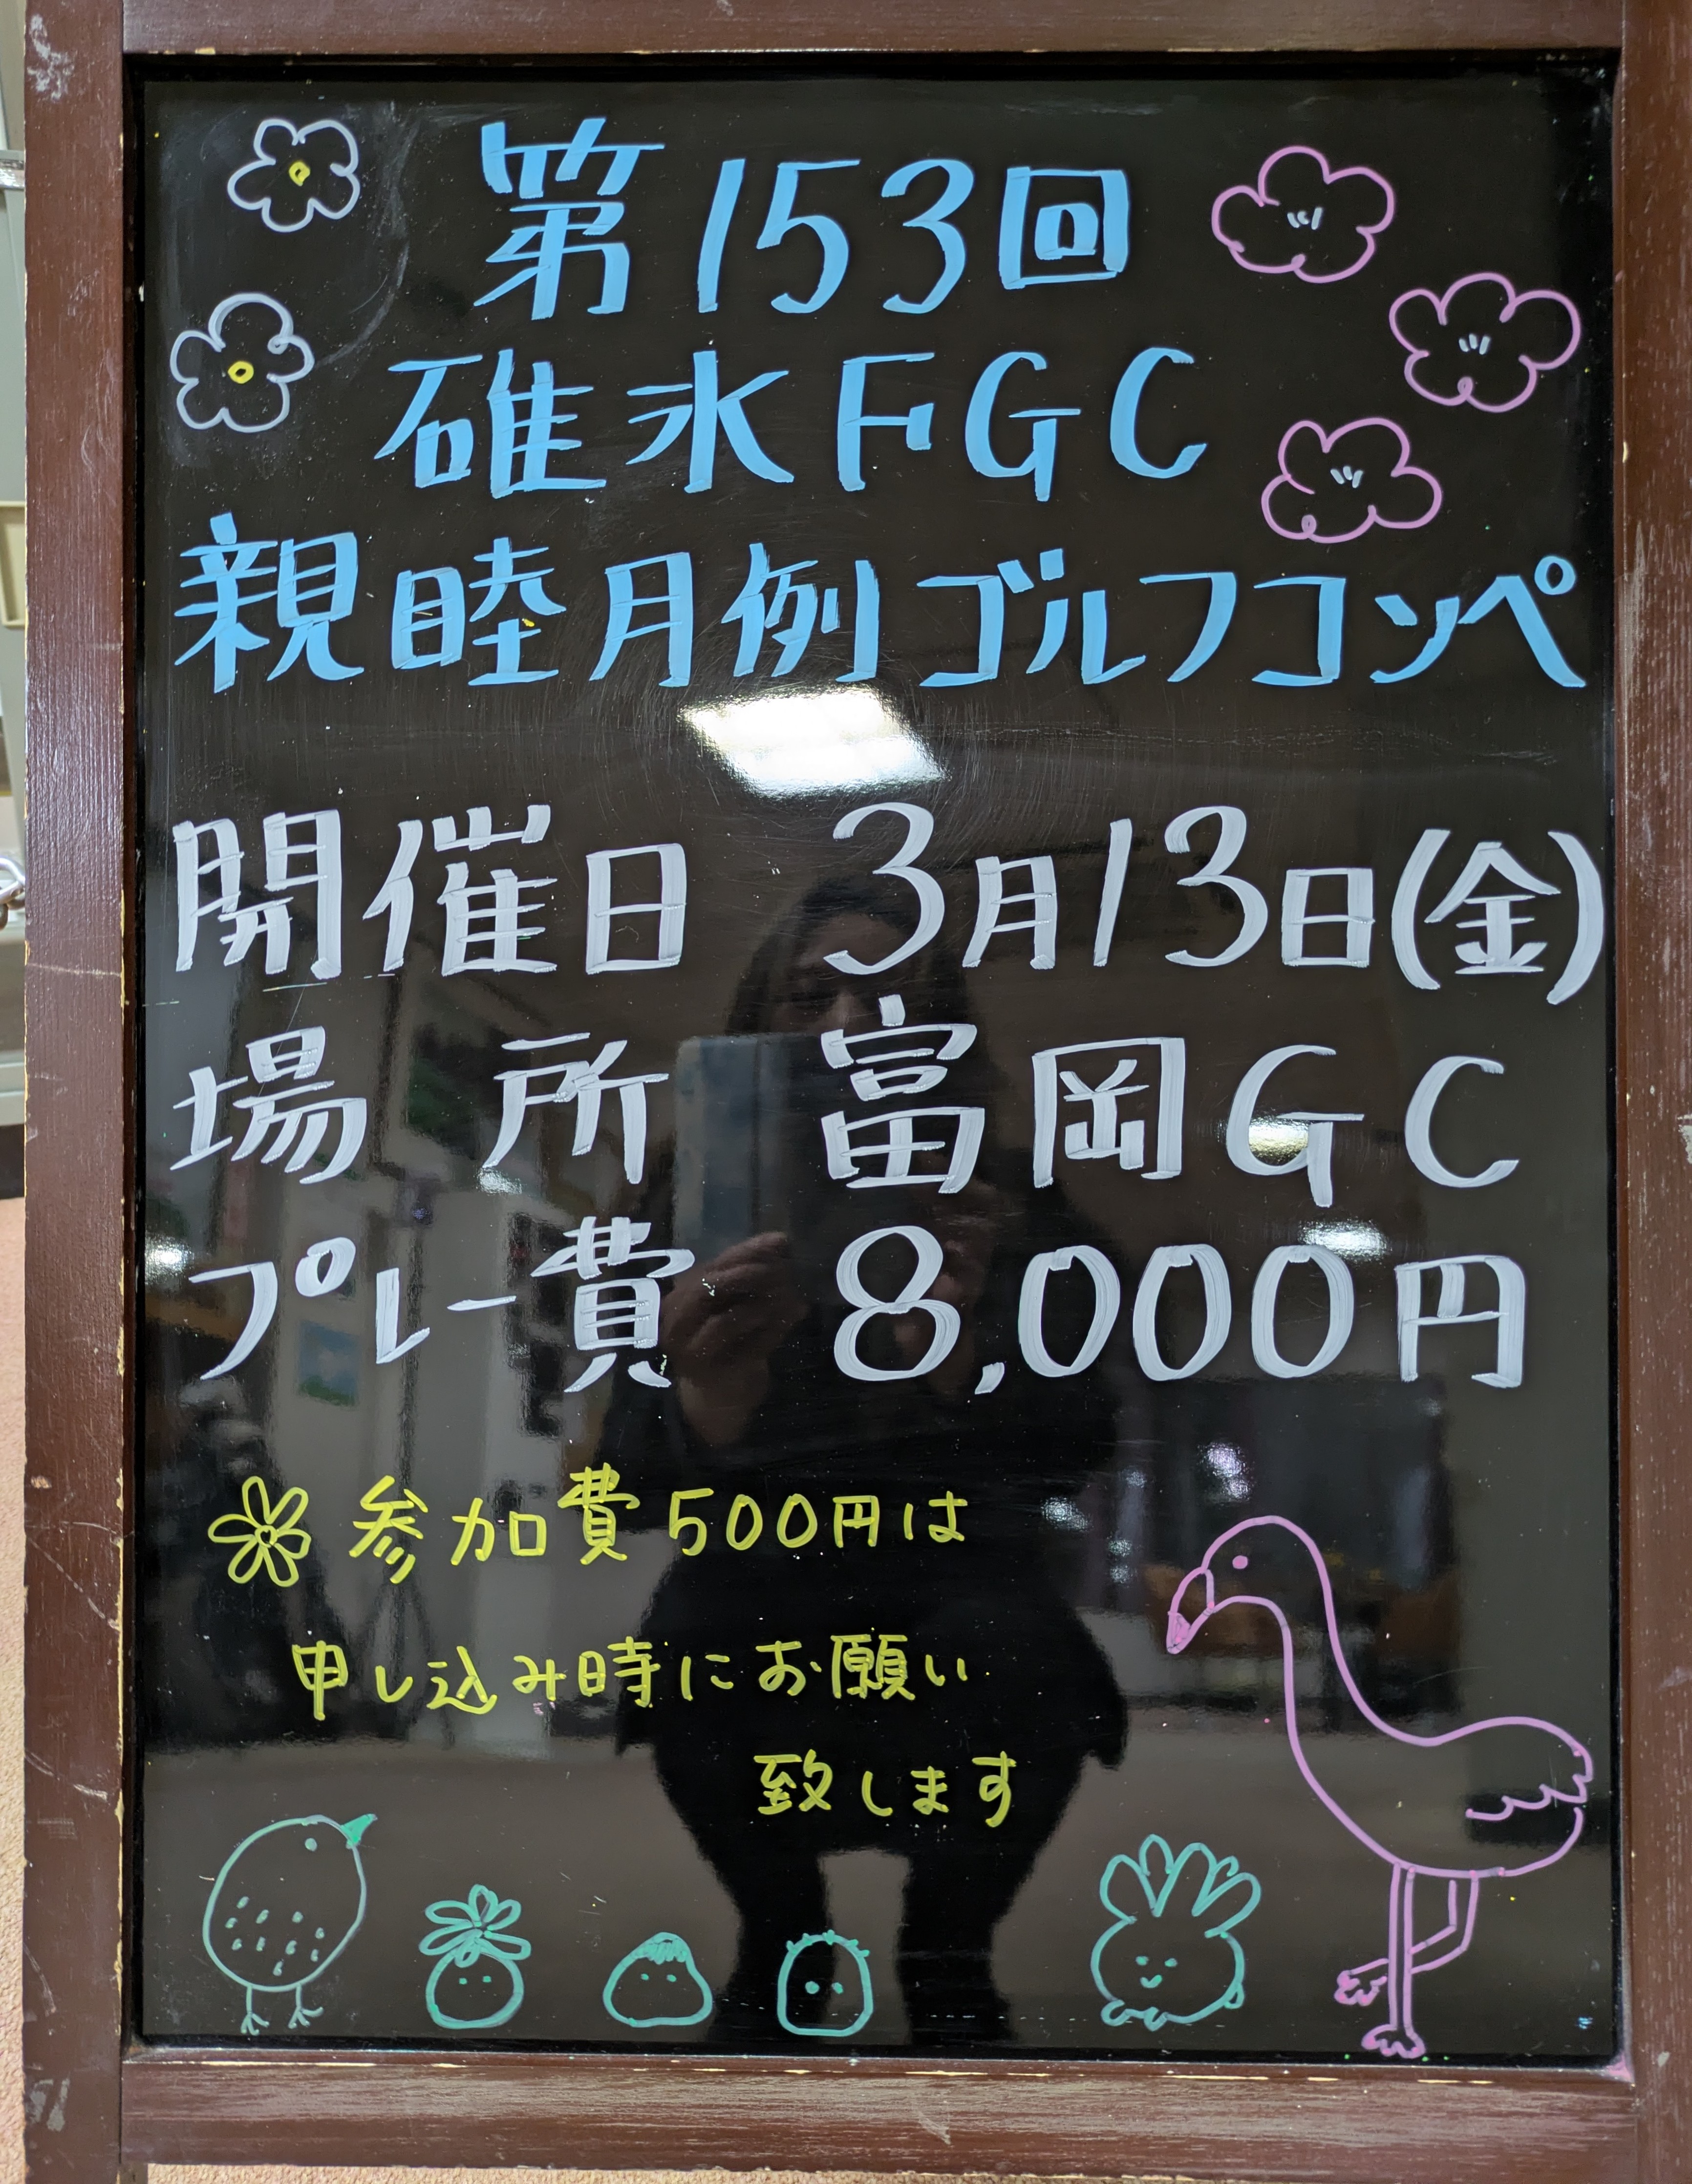 第153回
碓氷FGC
親睦月例ゴルフコンペ
開催日 3月13日(金)
場所 富岡GC
プレー費 8,000円
参加費500円は
申し込み時にお願い
致します